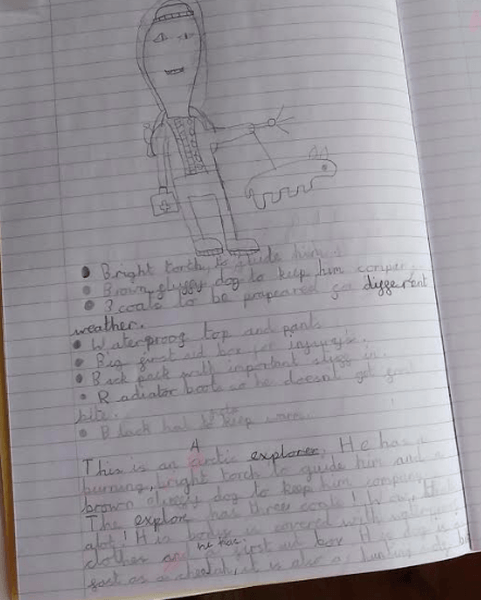 • Bright torch to guide him
• Brown fluffy dog to keep him compan
• 3 coats to be prepeared for different
weather.
• Waterproof top and pants
• Big first aid box for injurys.
• Back pack with important stuff in.
• Radiator boots so he doesn't get frost
bite.
• Black hat to keep warm.
A
This is an arctic explorer. He has a
burning, bright torch to guide him and a
brown fluffy dog to keep him company.
The explor has three coats!
alot! His body is covered with
clothes and he has first aid box His dog is as
fast as a cheetah, it is also a hunting dog